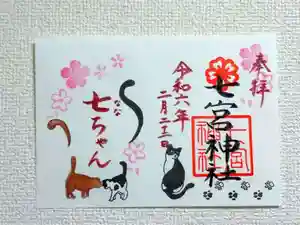 奉拝
七宮神社
令和六年
二月二十二日
七ちゃん
なな